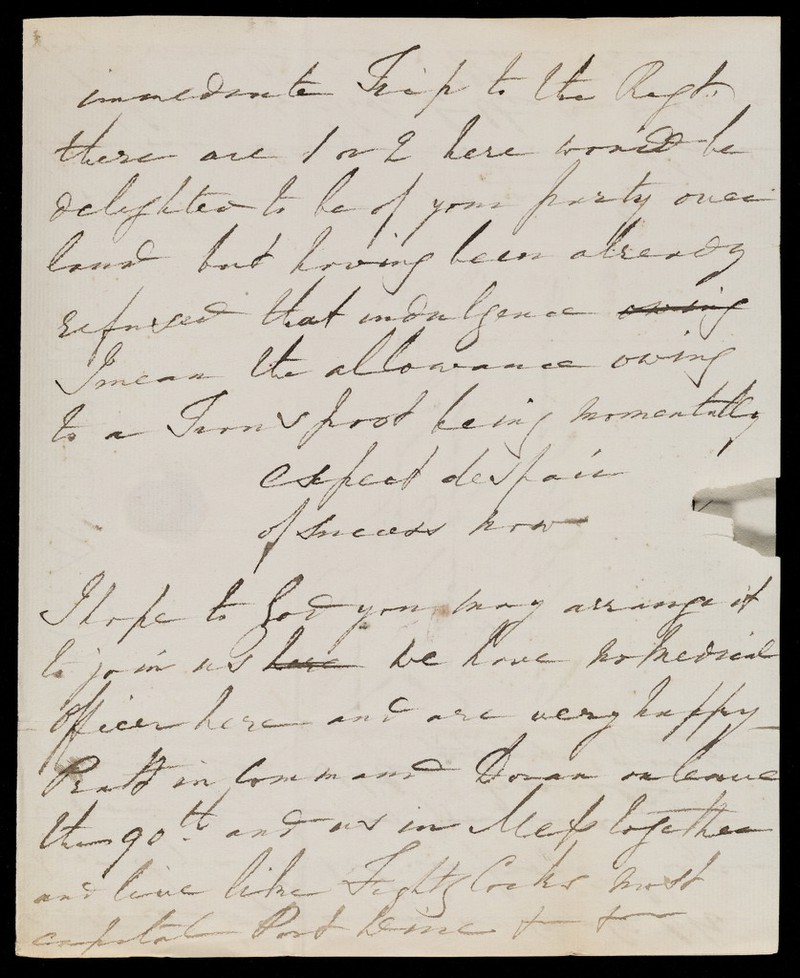 immediate Trip to the Regt.
there are 1 or 2 here would be
delighted to be of your party over
land but having been already
refused that indulgence owing
I mean the allowance owing
to a Transport being momentally
expect despair
of success now
I hope to God you may arrange it
to join us here We have no Medical
Officer here and are very happy
Pratt in Command Doran on leave
the 90th. and us in Mess together
and live like Fightg Cocks most
capital Port Wine